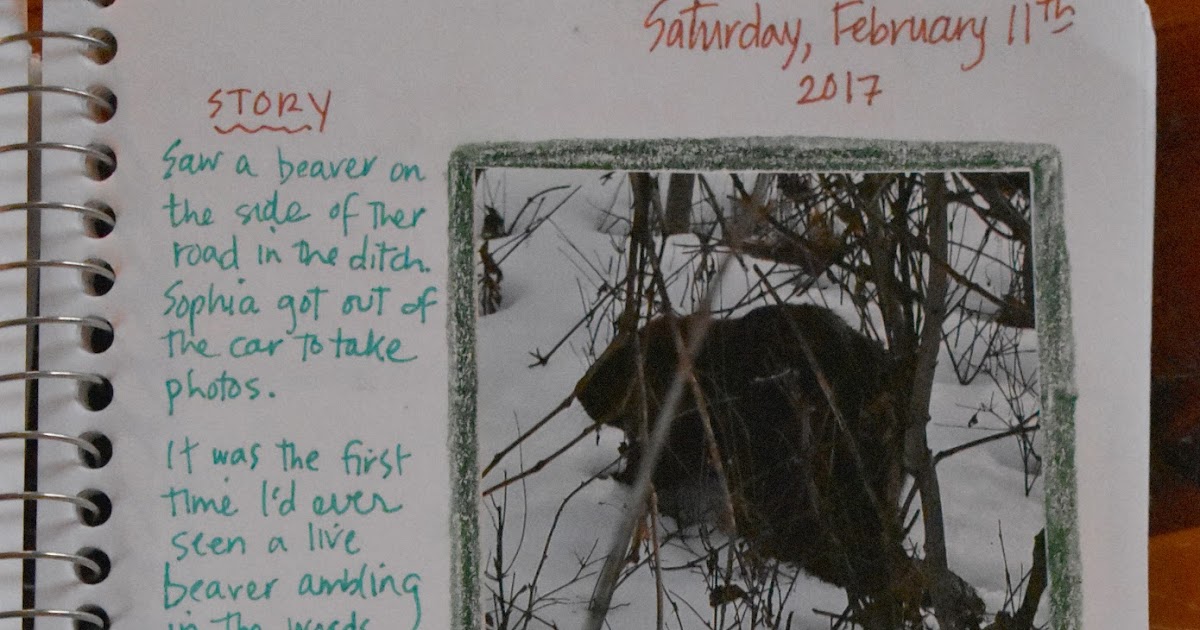 Saturday, February 11th
2017
STORY
Saw a beaver on
the side of Ther
road in the ditch.
Sophia got out of
the car to take
photos.
It was the first
time I'd ever
seen a live
beaver ambling
in the woods